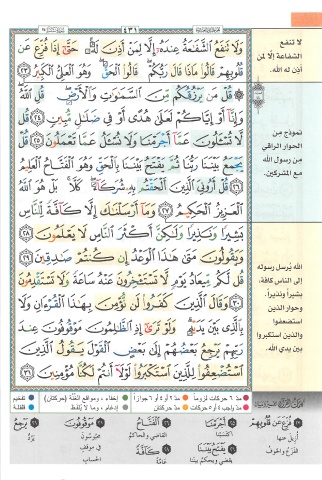 ٤٣١
وَلَا تَنفَعُ ٱلشَّفَٰعَةُ عِندَهُۥٓ إِلَّا لِمَنْ أَذِنَ لَهُۥ ۚ حَتَّىٰٓ إِذَا فُزِّعَ عَن
قُلُوبِهِمْ قَالُوا۟ مَاذَا قَالَ رَبُّكُمْ ۖ قَالُوا۟ ٱلْحَقَّ ۖ وَهُوَ ٱلْعَلِىُّ ٱلْكَبِيرُ ٢٣
قُلْ مَن يَرْزُقُكُم مِّنَ ٱلسَّمَٰوَٰتِ وَٱلْأَرْضِ ۖ قُلِ ٱللَّهُ ۖ
وَإِنَّآ أَوْ إِيَّاكُمْ لَعَلَىٰ هُدًى أَوْ فِى ضَلَٰلٍ مُّبِينٍ ٢٤ قُل
لَّا تُسْـَٔلُونَ عَمَّآ أَجْرَمْنَا وَلَا نُسْـَٔلُ عَمَّا تَعْمَلُونَ ٢٥ قُلْ
يَجْمَعُ بَيْنَنَا رَبُّنَا ثُمَّ يَفْتَحُ بَيْنَنَا بِٱلْحَقِّ وَهُوَ ٱلْفَتَّاحُ ٱلْعَلِيمُ
٢٦ قُلْ أَرُونِىَ ٱلَّذِينَ أَلْحَقْتُم بِهِۦ شُرَكَآءَ ۖ كَلَّا ۚ بَلْ هُوَ ٱللَّهُ
ٱلْعَزِيزُ ٱلْحَكِيمُ ٢٧ وَمَآ أَرْسَلْنَٰكَ إِلَّا كَآفَّةً لِّلنَّاسِ
بَشِيرًا وَنَذِيرًا وَلَٰكِنَّ أَكْثَرَ ٱلنَّاسِ لَا يَعْلَمُونَ ٢٨
وَيَقُولُونَ مَتَىٰ هَٰذَا ٱلْوَعْدُ إِن كُنتُمْ صَٰدِقِينَ ٢٩
قُل لَّكُم مِّيعَادُ يَوْمٍ لَّا تَسْتَـْٔخِرُونَ عَنْهُ سَاعَةً وَلَا تَسْتَقْدِمُونَ
٣٠ وَقَالَ ٱلَّذِينَ كَفَرُوا۟ لَن نُّؤْمِنَ بِهَٰذَا ٱلْقُرْءَانِ وَلَا
بِٱلَّذِى بَيْنَ يَدَيْهِ ۗ وَلَوْ تَرَىٰٓ إِذِ ٱلظَّٰلِمُونَ مَوْقُوفُونَ عِندَ
رَبِّهِمْ يَرْجِعُ بَعْضُهُمْ إِلَىٰ بَعْضٍ ٱلْقَوْلَ يَقُولُ ٱلَّذِينَ
ٱسْتُضْعِفُوا۟ لِلَّذِينَ ٱسْتَكْبَرُوا۟ لَوْلَآ أَنتُمْ لَكُنَّا مُؤْمِنِينَ ٣١
لا تنفع
الشفاعة إلا لمن
أذن له الله.
نموذج من
الحوار الراقي
من رسول الله
مع المشركين.
الله يُرسل رسوله
إلى الناس كافة،
بشيراً ونذيراً،
وحوار الذين
استضعفوا
والذين استكبروا
بين يدي الله.
مدّ ٦ حركات لزوماً مدّ ٢ أو ٤ أو ٦ جوازاً إخفاء، ومواقع الغُنَّة (حركتان) تفخيم
مدّ واجب ٤ أو ٥ حركات مدّ حركتان إدغام، وما لا يُلفظ قلقلة
فُزِّعَ عَن قُلُوبِهِمْ
أُزيل عنها
الفزع والخوف
أَجْرَمْنَا
اكتسبنا
يَفْتَحُ بَيْنَنَا
يقضي ويحكم بيننا
ٱلْفَتَّاحُ
القاضي والحاكم
كَآفَّةً
عامّة
مَوْقُوفُونَ
محبوسون
في موقف
الحساب
يَرْجِعُ
يردّ